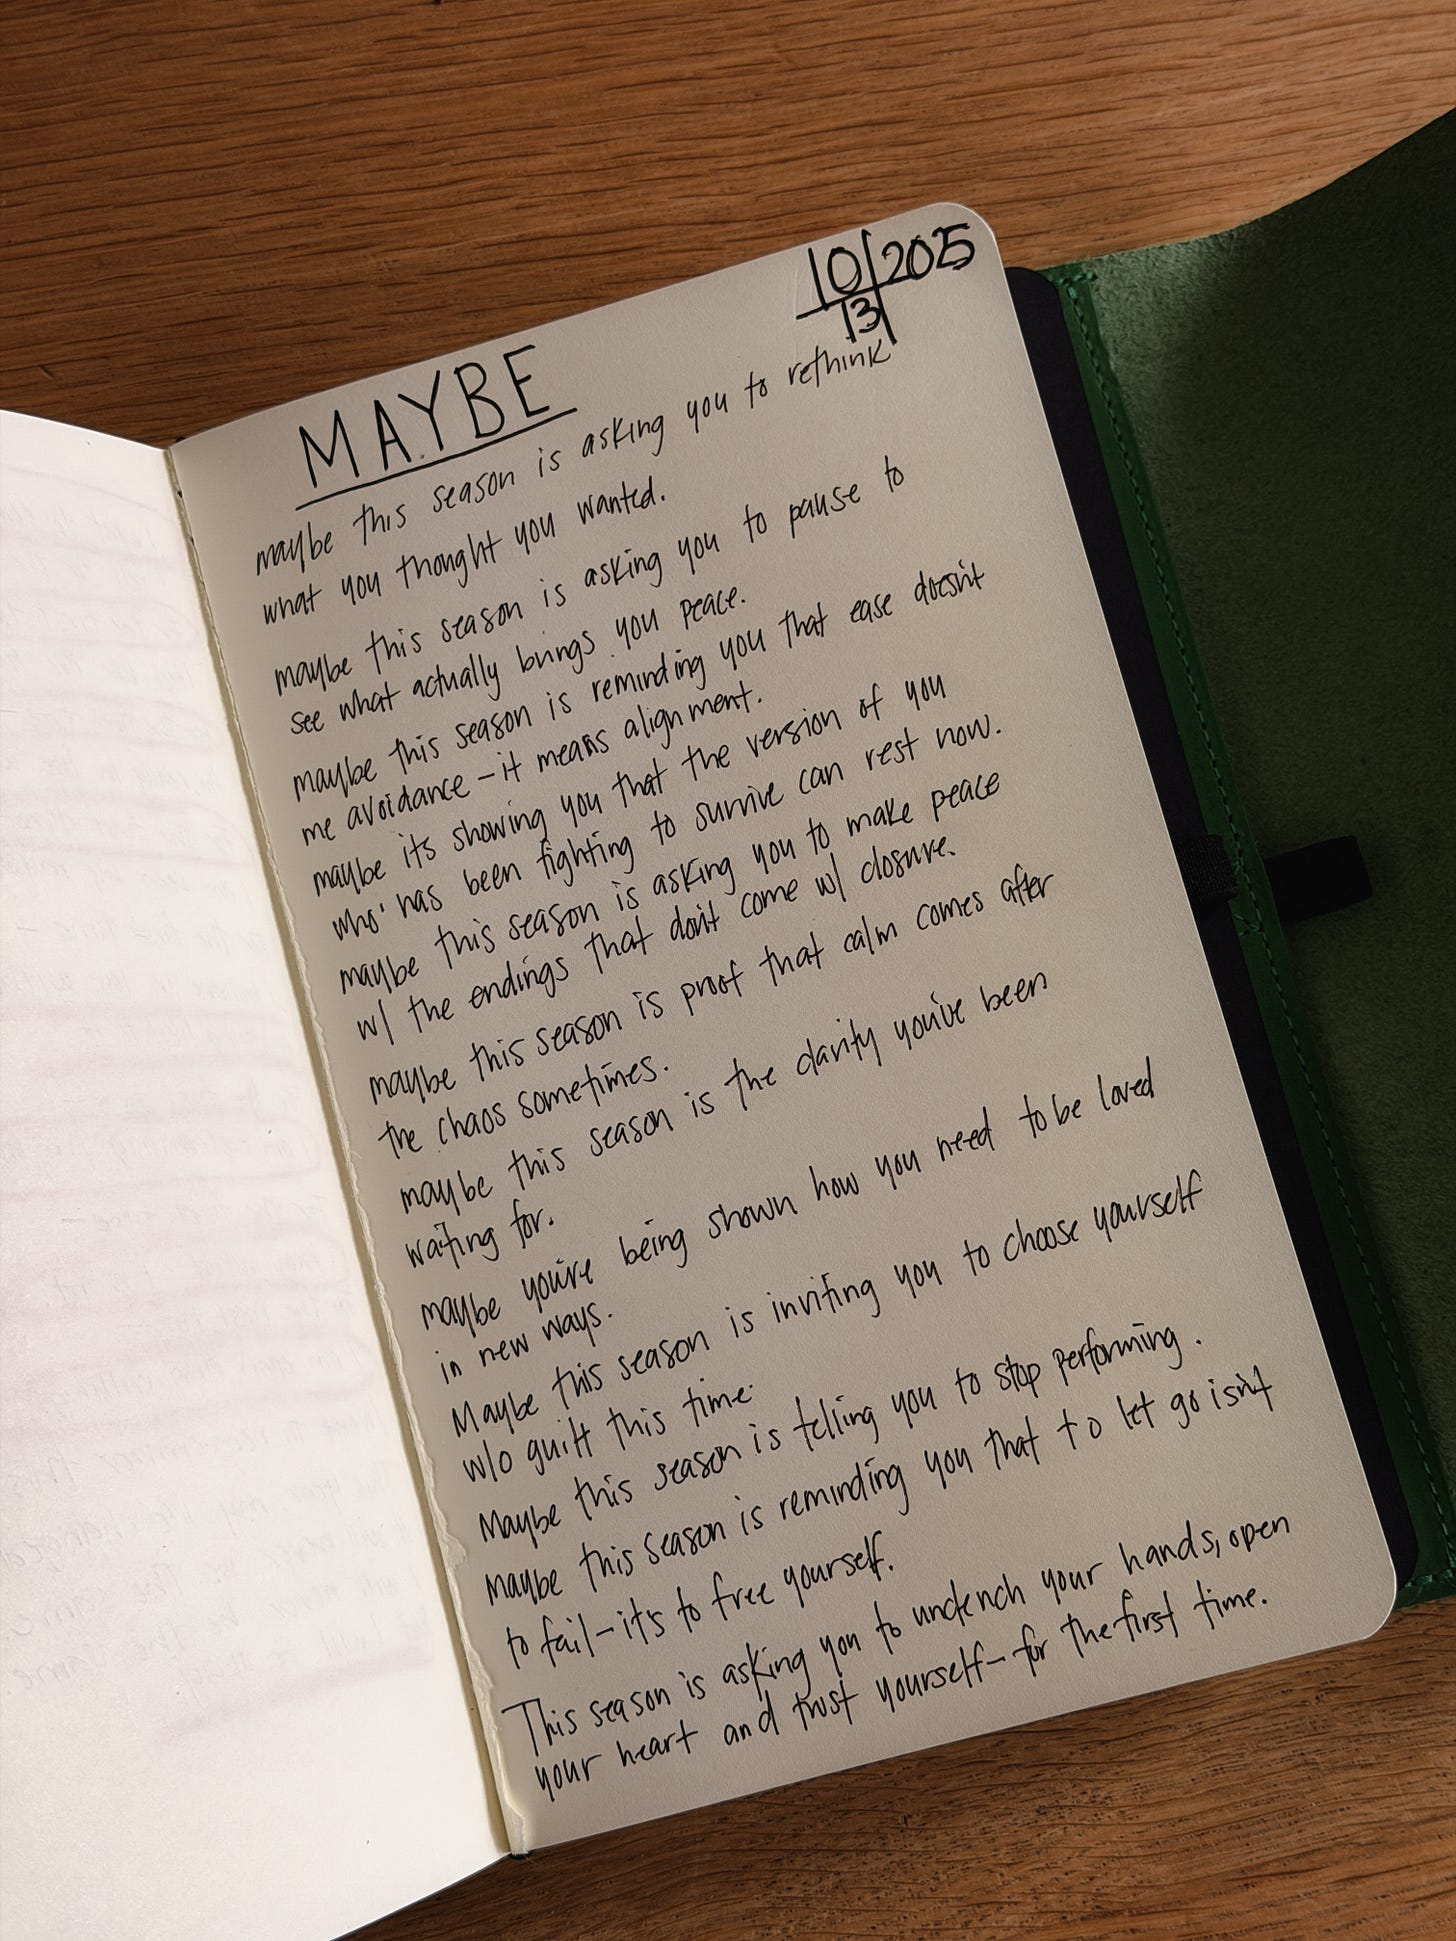 10/2025
13
MAYBE
maybe this season is asking you to rethink
what you thought you wanted.
maybe this season is asking you to pause to
see what actually brings you peace.
maybe this season is reminding you that ease doesn't
me avoidance – it means alignment.
maybe its showing you that the version of you
who' has been fighting to survive can rest now.
maybe this season is asking you to make peace
w/ the endings that don't come w/ closure.
maybe this season is proof that calm comes after
the chaos sometimes.
maybe this season is the clarity you've been
waiting for.
maybe you're being shown how you need to be loved
in new ways.
Maybe this season is inviting you to choose yourself
w/o guilt this time.
Maybe this season is telling you to stop performing.
maybe this season is reminding you that to let go isn't
to fail – it's to free yourself.
This season is asking you to unclench your hands, open
your heart and trust yourself – for the first time.